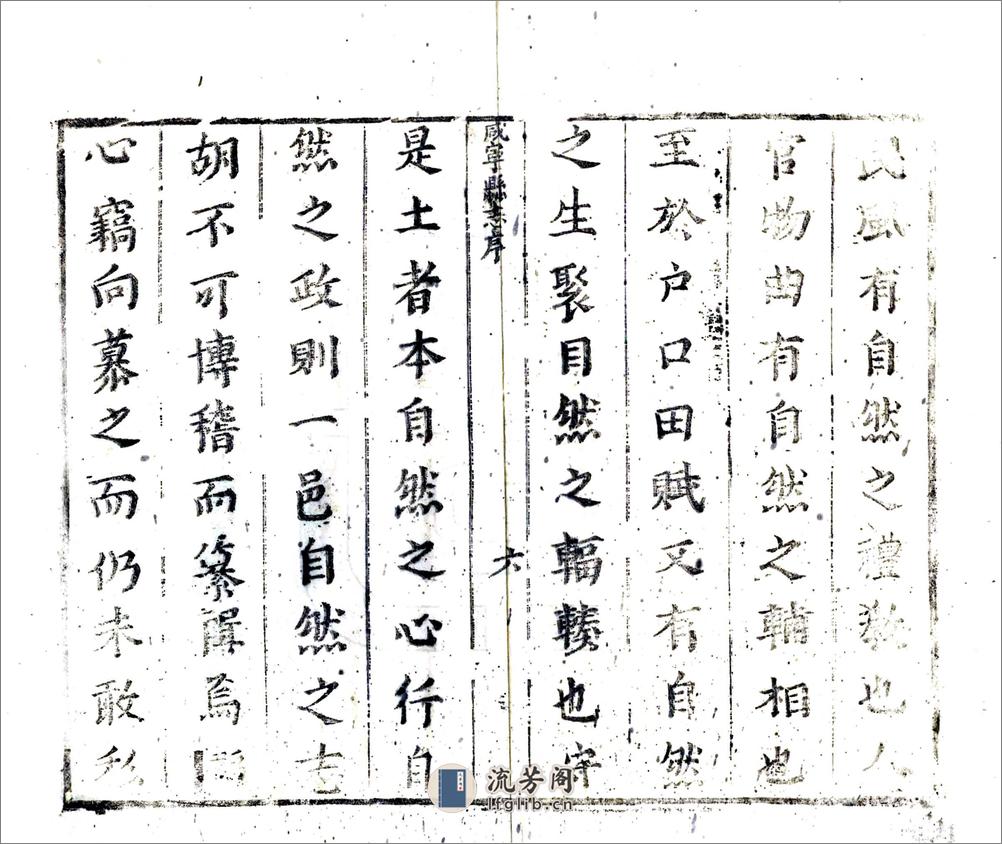 民風有自然之禮教也人
官物曲有自然之輔相也
至於户口田賦又有自然
之生聚目然之輻輳也守
咸寧縣志序
六
是土者本自然之心行自
然之政則一邑自然之志
胡不可博稽而纂輯焉
心竊向慕之而仍未敢私
流芳阁
lfglib.cn